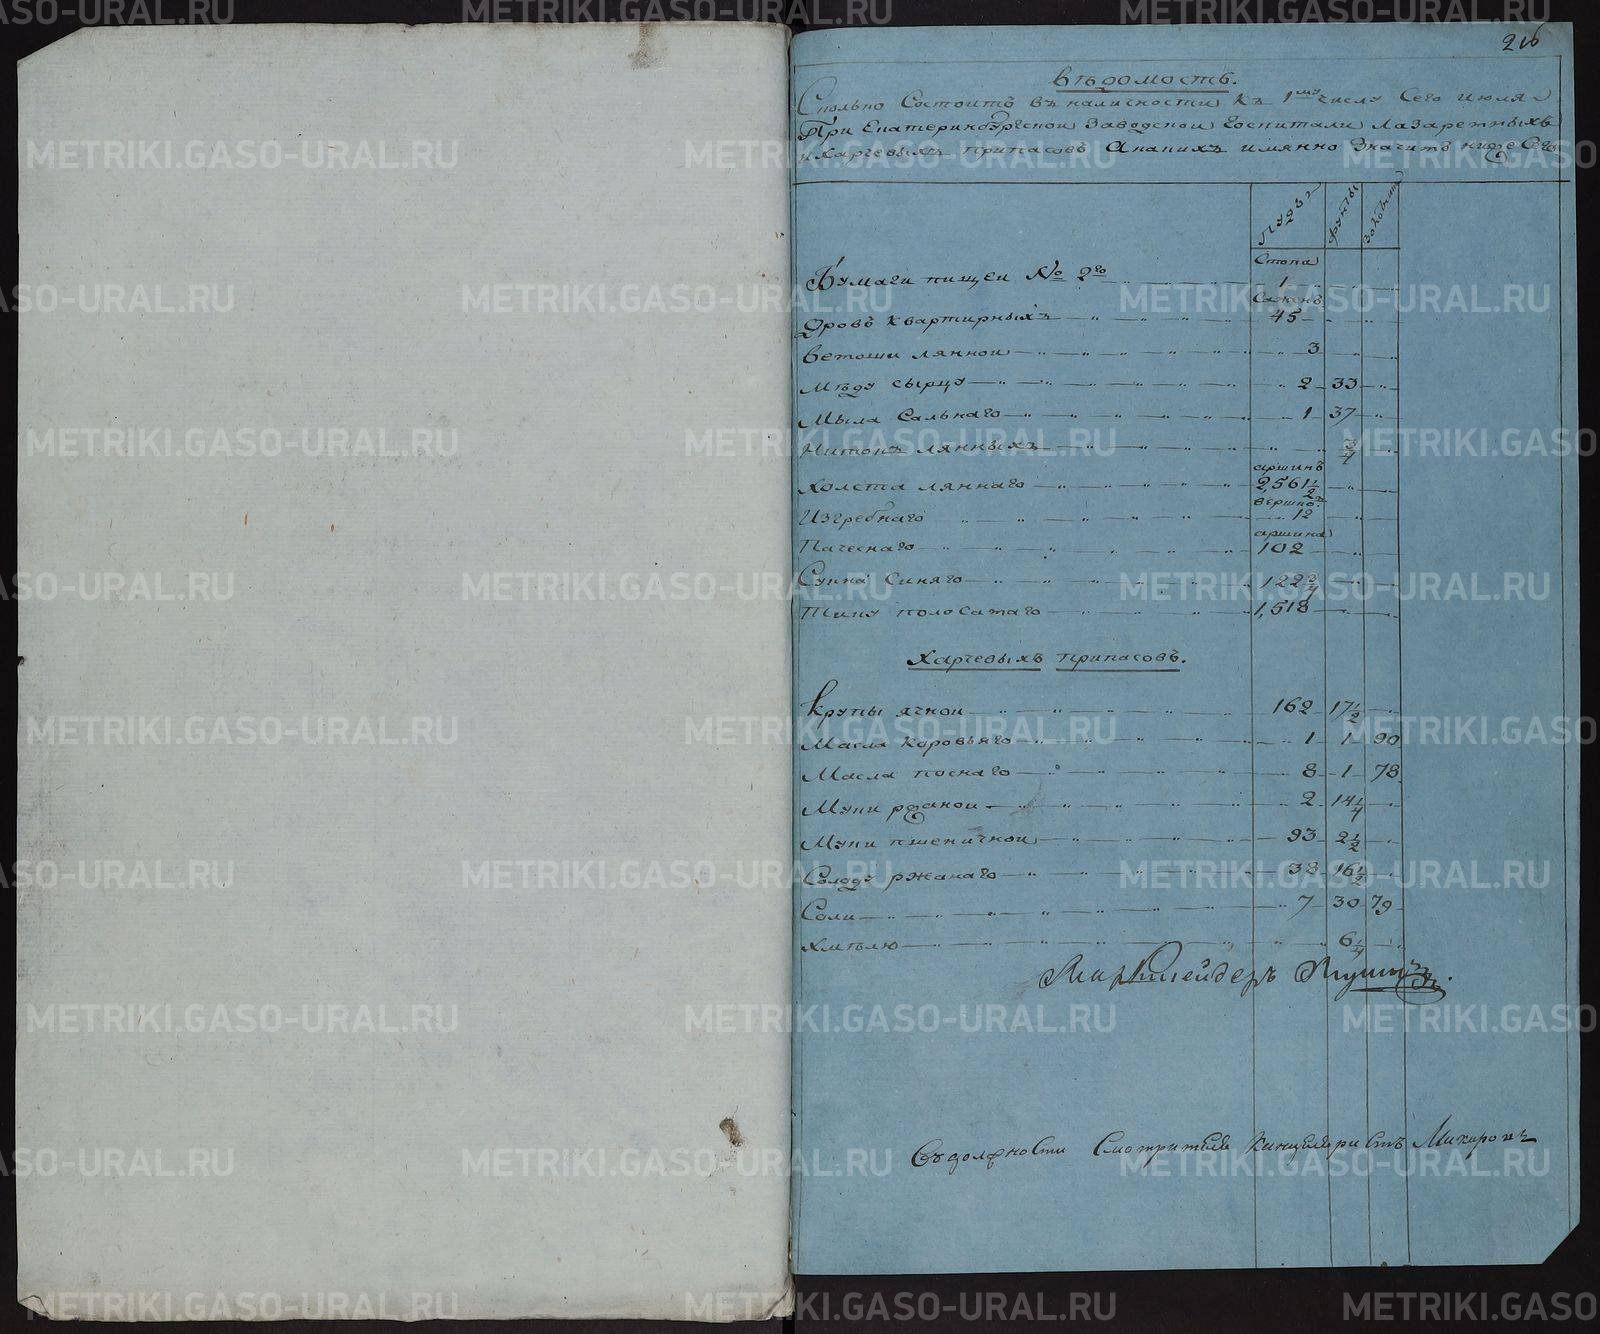 216
Вѣдомость.
Сколько Состоитъ въ наличности къ 1му числу Сего июля
При Екатеринбургской Заводской госпитали лазаретныхъ
и Харчевыхъ припасовъ Аканихъ имянно значитъ ниже Сего
Пуды фунты золотн
Стопа
Бумаги пищеи № 2го 1
Сажень
Дровъ квартирныхъ 45
Ветоши лянной 3
Мѣду сырцу 2 33
Мыла Сальнаго 1 37
Нитокъ лянныхъ 3/4
аршинъ
Холста ляннаго 2,561 1/2
вершко:
Изгребнаго 12
аршина
Пачеснаго 102
Сукна Синяго 122 3/4
Тику полосатаго 1,518
Харчевыхъ припасовъ.
Крупы ячной 162 17 1/2
Масла коровьяго 1 1 90
Масла поснаго 8 1 78
Муки ржаной 2 14 1/4
Муки пшеничной 93 2 1/2
Солоду ржанаго 38 16 1/2
Соли 7 30 79
Хмѣлю 6 1/4
Маркшейдеръ
Въ должности Смотрителя Канцеляристъ
METRIKI.GASO-URAL.RU